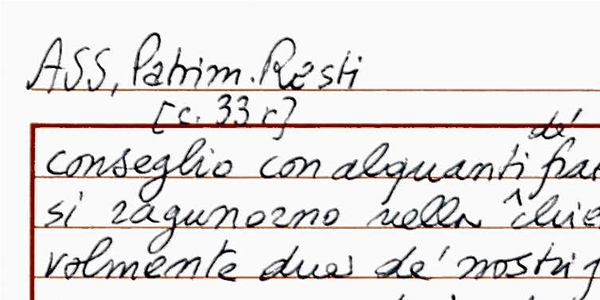 ASS, Patrim. Resti
[c. 33 r]
de'
conseglio con alquanti fra
si ragunorno nella chie
volmente due de' nostri